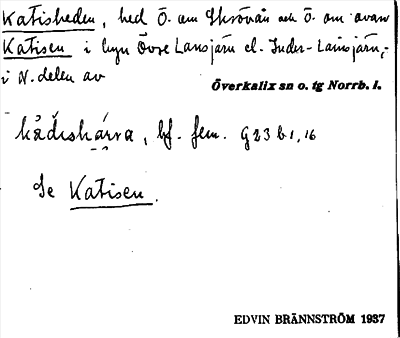 Katisheden, hed Ö. om Ekrövån och Ö. om avan
Katisen i byn Övre Lansjärv el.
i N. delen av
Överkalix sn o. tg Norrb. l.
bf. fem. G23 b1,16
Se Katisen.
EDVIN BRÄNNSTRÖM 1937